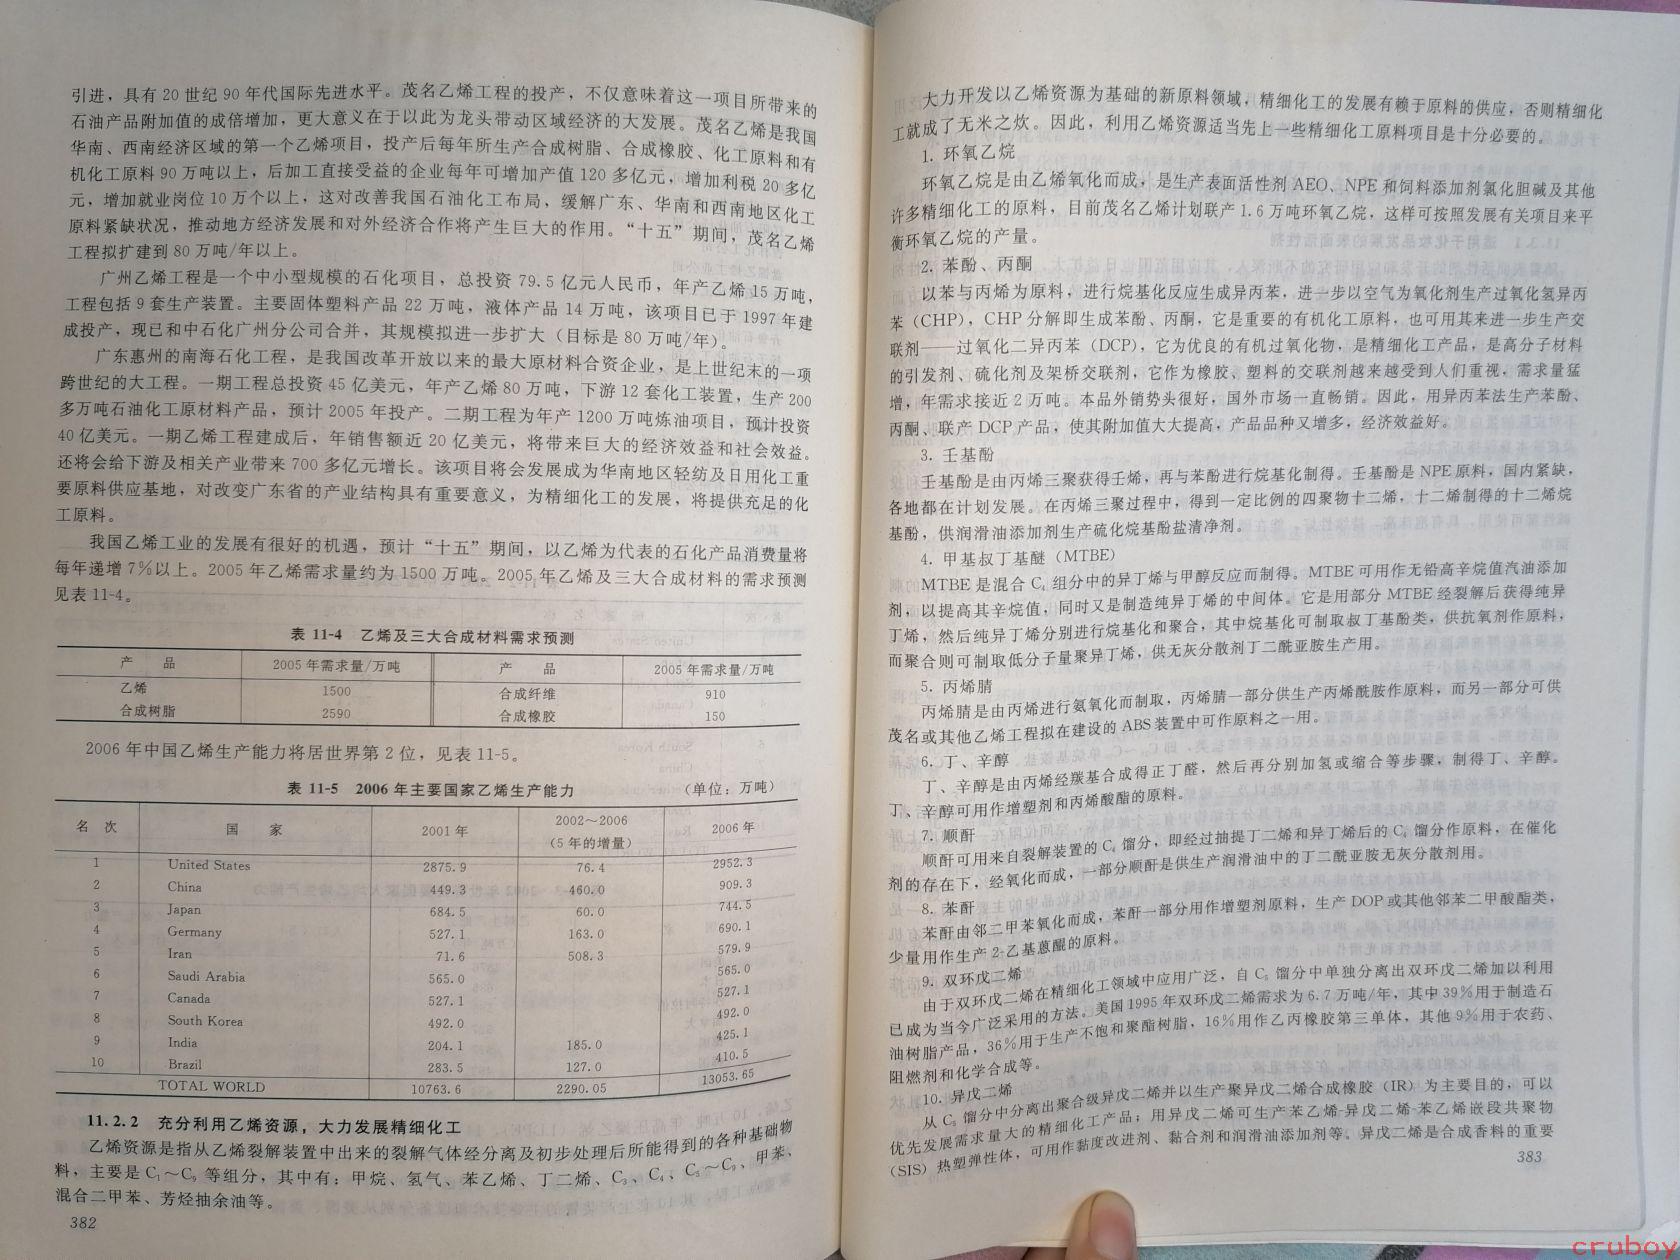 引进，具有 20 世纪 90 年代国际先进水平。茂名乙烯工程的投产，不仅意味着这一项目所带来的
石油产品附加值的成倍增加，更大意义在于以此为龙头带动区域经济的大发展。茂名乙烯是我国
华南、西南经济区域的第一个乙烯项目，投产后每年所生产合成树脂、合成橡胶、化工原料和有
机化工原料 90 万吨以上，后加工直接受益的企业每年可增加产值 120 多亿元，增加利税 20 多亿
元，增加就业岗位 10 万个以上，这对改善我国石油化工布局，缓解广东、华南和西南地区化工
原料紧缺状况，推动地方经济发展和对外经济合作将产生巨大的作用。“十五”期间，茂名乙烯
工程拟扩建到 80 万吨/年以上。
广州乙烯工程是一个中小型规模的石化项目，总投资 79.5 亿元人民币，年产乙烯 15 万吨，
工程包括 9 套生产装置。主要固体塑料产品 22 万吨，液体产品 14 万吨，该项目已于 1997 年建
成投产，现已和中石化广州分公司合并，其规模拟进一步扩大（目标是 80 万吨/年）。
广东惠州的南海石化工程，是我国改革开放以来的最大原材料合资企业，是上世纪末的一项
跨世纪的大工程。一期工程总投资 45 亿美元，年产乙烯 80 万吨，下游 12 套化工装置，生产 200
多万吨石油化工原材料产品，预计 2005 年投产。二期工程为年产 1200 万吨炼油项目，预计投资
40 亿美元。一期乙烯工程建成后，年销售额近 20 亿美元，将带来巨大的经济效益和社会效益。
还将会给下游及相关产业带来 700 多亿元增长。该项目将会发展成为华南地区轻纺及日用化工重
要原料供应基地，对改变广东省的产业结构具有重要意义，为精细化工的发展，将提供充足的化
工原料。
我国乙烯工业的发展有很好的机遇，预计“十五”期间，以乙烯为代表的石化产品消费量将
每年递增 7%以上。2005 年乙烯需求量约为 1500 万吨。2005 年乙烯及三大合成材料的需求预测
见表 11-4。
表 11-4 乙烯及三大合成材料需求预测
产 品 2005 年需求量/万吨 产 品 2005 年需求量/万吨
乙烯 1500 合成纤维 910
合成树脂 2590 合成橡胶 150
2006 年中国乙烯生产能力将居世界第 2 位，见表 11-5。
表 11-5 2006 年主要国家乙烯生产能力 （单位：万吨）
名 次 国 家 2001 年 2002～2006（5 年的增量） 2006 年
1 United States 2875.9 76.4 2952.3
2 China 449.3 460.0 909.3
3 Japan 684.5 60.0 744.5
4 Germany 527.1 163.0 690.1
5 Iran 71.6 508.3 579.9
6 Saudi Arabia 565.0 565.0
7 Canada 527.1 527.1
8 South Korea 492.0 492.0
9 India 204.1 185.0 425.1
10 Brazil 283.5 127.0 410.5
TOTAL WORLD 10763.6 2290.05 13053.65
11.2.2 充分利用乙烯资源，大力发展精细化工
乙烯资源是指从乙烯裂解装置中出来的裂解气体经分离及初步处理后所能得到的各种基础物
料，主要是 C₁～C₉ 等组分，其中有：甲烷、氢气、苯乙烯、丁二烯、C₃、C₄、C₅～C₉、甲苯、
混合二甲苯、芳烃抽余油等。
382
大力开发以乙烯资源为基础的新原料领域，精细化工的发展有赖于原料的供应，否则精细化
工就成了无米之炊。因此，利用乙烯资源适当先上一些精细化工原料项目是十分必要的。
1. 环氧乙烷
环氧乙烷是由乙烯氧化而成，是生产表面活性剂 AEO、NPE 和饲料添加剂氯化胆碱及其他
许多精细化工的原料，目前茂名乙烯计划联产 1.6 万吨环氧乙烷，这样可按照发展有关项目来平
衡环氧乙烷的产量。
2. 苯酚、丙酮
以苯与丙烯为原料，进行烷基化反应生成异丙苯，进一步以空气为氧化剂生产过氧化氢异丙
苯（CHP），CHP 分解即生成苯酚、丙酮，它是重要的有机化工原料，也可用其来进一步生产交
联剂——过氧化二异丙苯（DCP），它为优良的有机过氧化物，是精细化工产品，是高分子材料
的引发剂、硫化剂及架桥交联剂，它作为橡胶、塑料的交联剂越来越受到人们重视，需求量猛
增，年需求接近 2 万吨。本品外销势头很好，国外市场一直畅销。因此，用异丙苯法生产苯酚、
丙酮、联产 DCP 产品，使其附加值大大提高，产品品种又增多，经济效益好。
3. 壬基酚
壬基酚是由丙烯三聚获得壬烯，再与苯酚进行烷基化制得。壬基酚是 NPE 原料，国内紧缺，
各地都在计划发展。在丙烯三聚过程中，得到一定比例的四聚物十二烯，十二烯制得的十二烯烷
基酚，供润滑油添加剂生产硫化烷基酚盐清净剂。
4. 甲基叔丁基醚（MTBE）
MTBE 是混合 C₄ 组分中的异丁烯与甲醇反应而制得。MTBE 可用作无铅高辛烷值汽油添加
剂，以提高其辛烷值，同时又是制造纯异丁烯的中间体。它是用部分 MTBE 经裂解后获得纯异
丁烯，然后纯异丁烯分别进行烷基化和聚合，其中烷基化可制取叔丁基酚类，供抗氧剂作原料，
而聚合则可制取低分子量聚异丁烯，供无灰分散剂丁二酰亚胺生产用。
5. 丙烯腈
丙烯腈是由丙烯进行氨氧化而制取，丙烯腈一部分供生产丙烯酰胺作原料，而另一部分可供
茂名或其他乙烯工程拟在建设的 ABS 装置中可作原料之一用。
6. 丁、辛醇
丁、辛醇是由丙烯经羰基合成得正丁醛，然后再分别加氢或缩合等步骤，制得丁、辛醇。
丁、辛醇可用作增塑剂和丙烯酸酯的原料。
7. 顺酐
顺酐可用来自裂解装置的 C₄ 馏分，即经过抽提丁二烯和异丁烯后的 C₄ 馏分作原料，在催化
剂的存在下，经氧化而成，一部分顺酐是供生产润滑油中的丁二酰亚胺无灰分散剂用。
8. 苯酐
苯酐由邻二甲苯氧化而成，苯酐一部分用作增塑剂原料，生产 DOP 或其他邻苯二甲酸酯类，
少量用作生产 2-乙基蒽醌的原料。
9. 双环戊二烯
由于双环戊二烯在精细化工领域中应用广泛，自 C₅ 馏分中单独分离出双环戊二烯加以利用
已成为当今广泛采用的方法。美国 1995 年双环戊二烯需求为 6.7 万吨/年，其中 39%用于制造石
油树脂产品，36%用于生产不饱和聚酯树脂，16%用作乙丙橡胶第三单体，其他 9%用于农药、
阻燃剂和化学合成等。
10. 异戊二烯
从 C₅ 馏分中分离出聚合级异戊二烯并以生产聚异戊二烯合成橡胶（IR）为主要目的，可以
优先发展需求量大的精细化工产品；用异戊二烯可生产苯乙烯-异戊二烯-苯乙烯嵌段共聚物
（SIS）热塑弹性体，可用作黏度改进剂、黏合剂和润滑油添加剂等。异戊二烯是合成香料的重要
383
cruboy